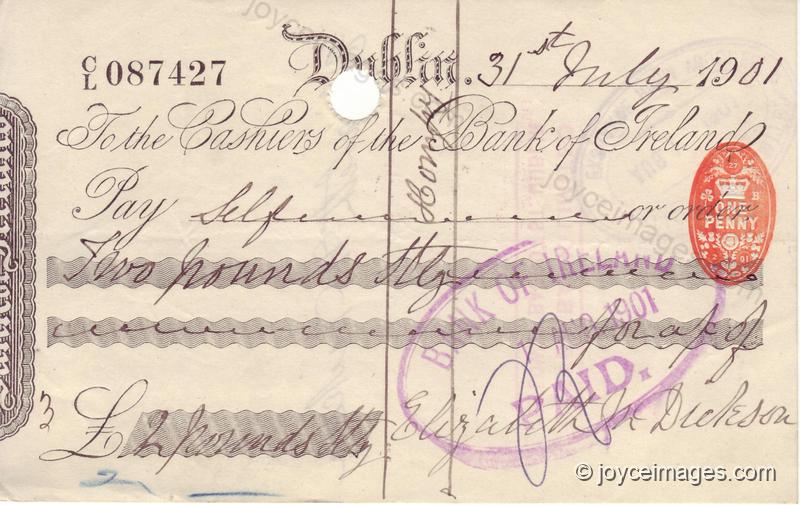 C/L 087427 Dublin. 31st July 1901
To the Cashiers of the Bank of Ireland
Pay Self or order
Two pounds Stg
for a/c of
3 £ 2 pounds Stg Elizabeth M Dickson
BANK OF IRELAND
1901
PAID.
ONE
PENNY
joyceimages.com
joyceimages.com
© joyceimages.com